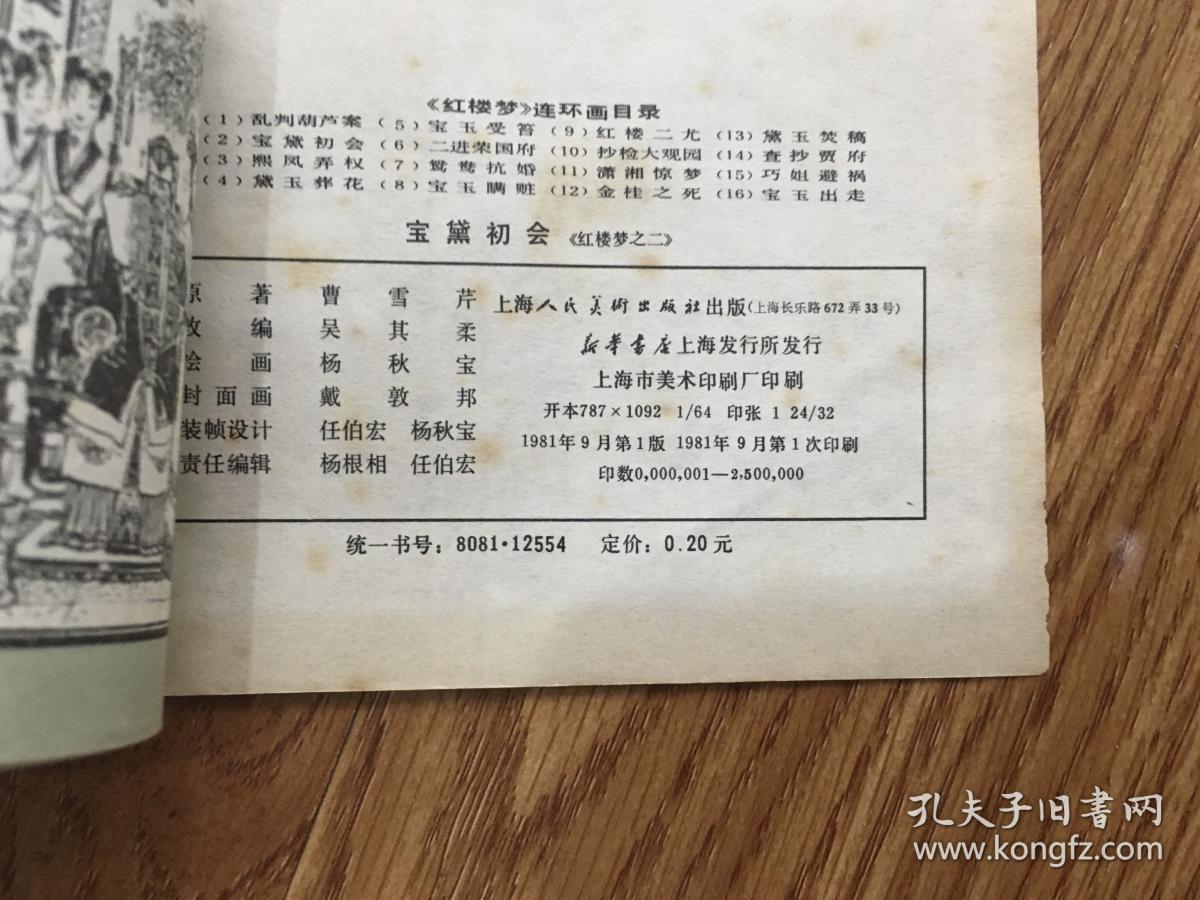 《红楼梦》连环画目录
(1) 乱判葫芦案 (5) 宝玉受笞 (9) 红楼二尤 (13) 黛玉焚稿
(2) 宝黛初会 (6) 二进荣国府 (10) 抄检大观园 (14) 查抄贾府
(3) 熙凤弄权 (7) 鸳鸯抗婚 (11) 潇湘惊梦 (15) 巧姐避祸
(4) 黛玉葬花 (8) 宝玉瞒赃 (12) 金桂之死 (16) 宝玉出走
宝黛初会 《红楼梦之二》
原著 曹雪芹
改编 吴其柔
绘画 杨秋宝
封面画 戴敦邦
装帧设计 任伯宏 杨秋宝
责任编辑 杨根相 任伯宏
上海人民美術出版社出版(上海长乐路672弄33号)
新华书店上海发行所发行
上海市美术印刷厂印刷
开本787×1092 1/64 印张 1 24/32
1981年9月第1版 1981年9月第1次印刷
印数0,000,001—2,500,000
统一书号：8081·12554 定价：0.20元
孔夫子旧書网
www.kongfz.com